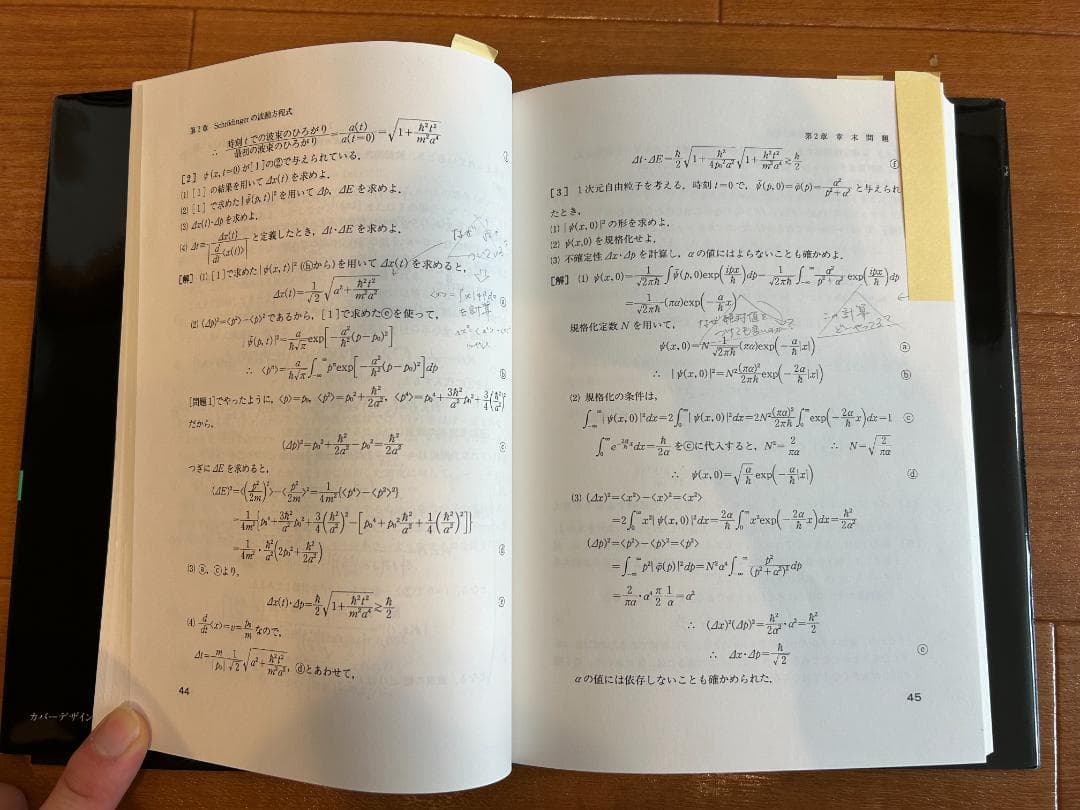 第2章 Schrödingerの波動方程式
∴ 時刻tでの波束のひろがり/最初の波束のひろがり=a(t)/a(t=0)=√(1+ℏ²t²/m²a⁴)
[2] ψ(x,t=0)が[1]の②で与えられている.
(1) [1]の結果を用いてΔx(t)を求めよ.
(2) [1]で求めた|ψ̃(p,t)|²を用いてΔp, ΔEを求めよ.
(3) Δx(t)・Δpを求めよ.
(4) Δt=Δx(t)/|d/dt⟨x(t)⟩| と定義したとき, Δt・ΔEを求めよ.
[解] (1) [1]で求めた|ψ(x,t)|²(ⓗから)を用いてΔx(t)を求めると,
Δx(t)=1/√2 √(a²+ℏ²t²/m²a²) ⓐ
(2) (Δp)²=⟨p²⟩−⟨p⟩²であるから, [1]で求めたⓔを使って,
|ψ̃(p,t)|²=a/ℏ√π exp[−a²/ℏ²(p−p₀)²]
∴ ⟨pⁿ⟩=a/ℏ√π ∫_{−∞}^{∞} pⁿexp[−a²/ℏ²(p−p₀)²]dp ⓑ
[問題1]でやったように, ⟨p⟩=p₀, ⟨p²⟩=p₀²+ℏ²/2a², ⟨p⁴⟩=p₀⁴+3ℏ²/a² p₀²+3/4(ℏ²/a²)²
だから,
(Δp)²=p₀²+ℏ²/2a²−p₀²=ℏ²/2a² ⓒ
つぎにΔEを求めると,
(ΔE)²=⟨(p²/2m)²⟩−⟨p²/2m⟩²=1/4m²{⟨p⁴⟩−⟨p²⟩²}
=1/4m²{p₀⁴+3ℏ²/a² p₀²+3/4(ℏ²/a²)²−[p₀⁴+p₀²ℏ²/a²+1/4(ℏ²/a²)²]}
=1/4m²・ℏ²/a²(2p₀²+ℏ²/2a²) ⓓ
(3) ⓐ, ⓒより,
Δx(t)・Δp=ℏ/2 √(1+ℏ²t²/m²a⁴)≥ℏ/2
(4) d/dt⟨x⟩=v=p₀/mなので,
Δt=m/|p₀| 1/√2 √(a²+ℏ²t²/m²a²), ⓓとあわせて,
44
カバーデザイン
第2章 章末問題
Δt・ΔE=ℏ/2 √(1+ℏ²/4p₀²a²) √(1+ℏ²t²/m²a⁴)≥ℏ/2 ⓕ
[3] 1次元自由粒子を考える. 時刻t=0で, ψ̃(p,0)=φ̃(p)=α²/(p²+α²) と与えられ
たとき,
(1) |ψ(x,0)|²の形を求めよ.
(2) ψ(x,0)を規格化せよ.
(3) 不確定性Δx・Δpを計算し, αの値にはよらないことも確かめよ.
[解] (1) ψ(x,0)=1/√2πℏ ∫ψ̃(p,0)exp(ipx/ℏ)dp=1/√2πℏ ∫_{−∞}^{∞} α²/(p²+α²) exp(ipx/ℏ)dp
=1/√2πℏ (πα)exp(−α/ℏ x)
なぜ絶対値を
つけても良いのか?
この計算
どーやってる?
規格化定数Nを用いて,
ψ(x,0)=N 1/√2πℏ (πα)exp(−α/ℏ|x|) ⓐ
∴ |ψ(x,0)|²=N²(πα)²/2πℏ exp(−2α/ℏ|x|) ⓑ
(2) 規格化の条件は,
∫_{−∞}^{∞}|ψ(x,0)|²dx=2∫₀^{∞}|ψ(x,0)|²dx=2N²(πα)²/2πℏ ∫₀^{∞}exp(−2α/ℏ x)dx=1 ⓒ
∫₀^{∞}e^{−2α/ℏ x}dx=ℏ/2αをⓒに代入すると, N²=2/πα ∴ N=√(2/πα)
∴ ψ(x,0)=√(α/ℏ) exp(−α/ℏ|x|) ⓓ
(3) (Δx)²=⟨x²⟩−⟨x⟩²=⟨x²⟩
=2∫₀^{∞}x²|ψ(x,0)|²dx=2α/ℏ ∫₀^{∞}x²exp(−2α/ℏ x)dx=ℏ²/2α²
(Δp)²=⟨p²⟩−⟨p⟩²=⟨p²⟩
=∫_{−∞}^{∞}p²|φ̃(p)|²dp=N²α⁴∫_{−∞}^{∞} p²/(p²+α²)² dp
=2/πα・α⁴ π/2 1/α=α²
∴ (Δx)²(Δp)²=ℏ²/2α²・α²=ℏ²/2
∴ Δx・Δp=ℏ/√2 ⓔ
αの値には依存しないことも確かめられた.
45